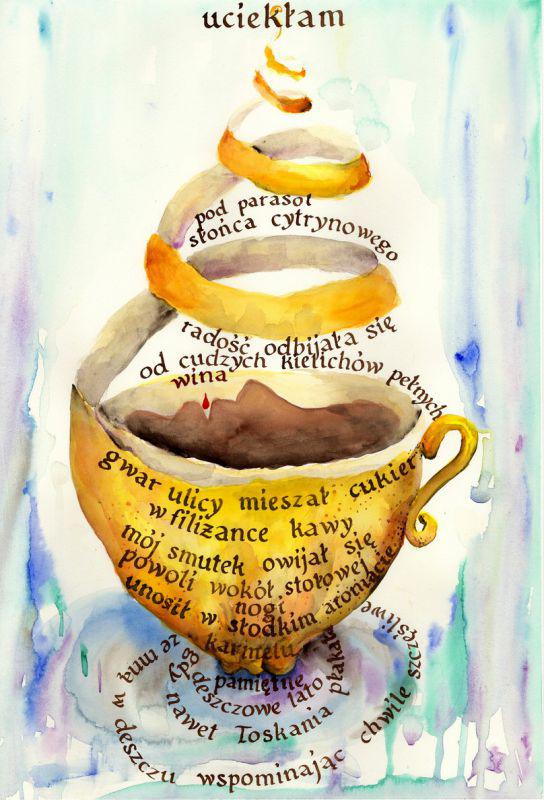 uciekłam
pod parasol
słońca cytrynowego
radość odbijała się
od cudzych kielichów pełnych
wina
gwar ulicy mieszał cukier
w filiżance kawy
mój smutek owijał się
powoli wokół stołowej
nogi
unosił w słodkim aromacie
karmelu
pamiętne
deszczowe lato
gdy nawet Toskania płakała
ze mną w deszczu wspominając chwile szczęśliwe